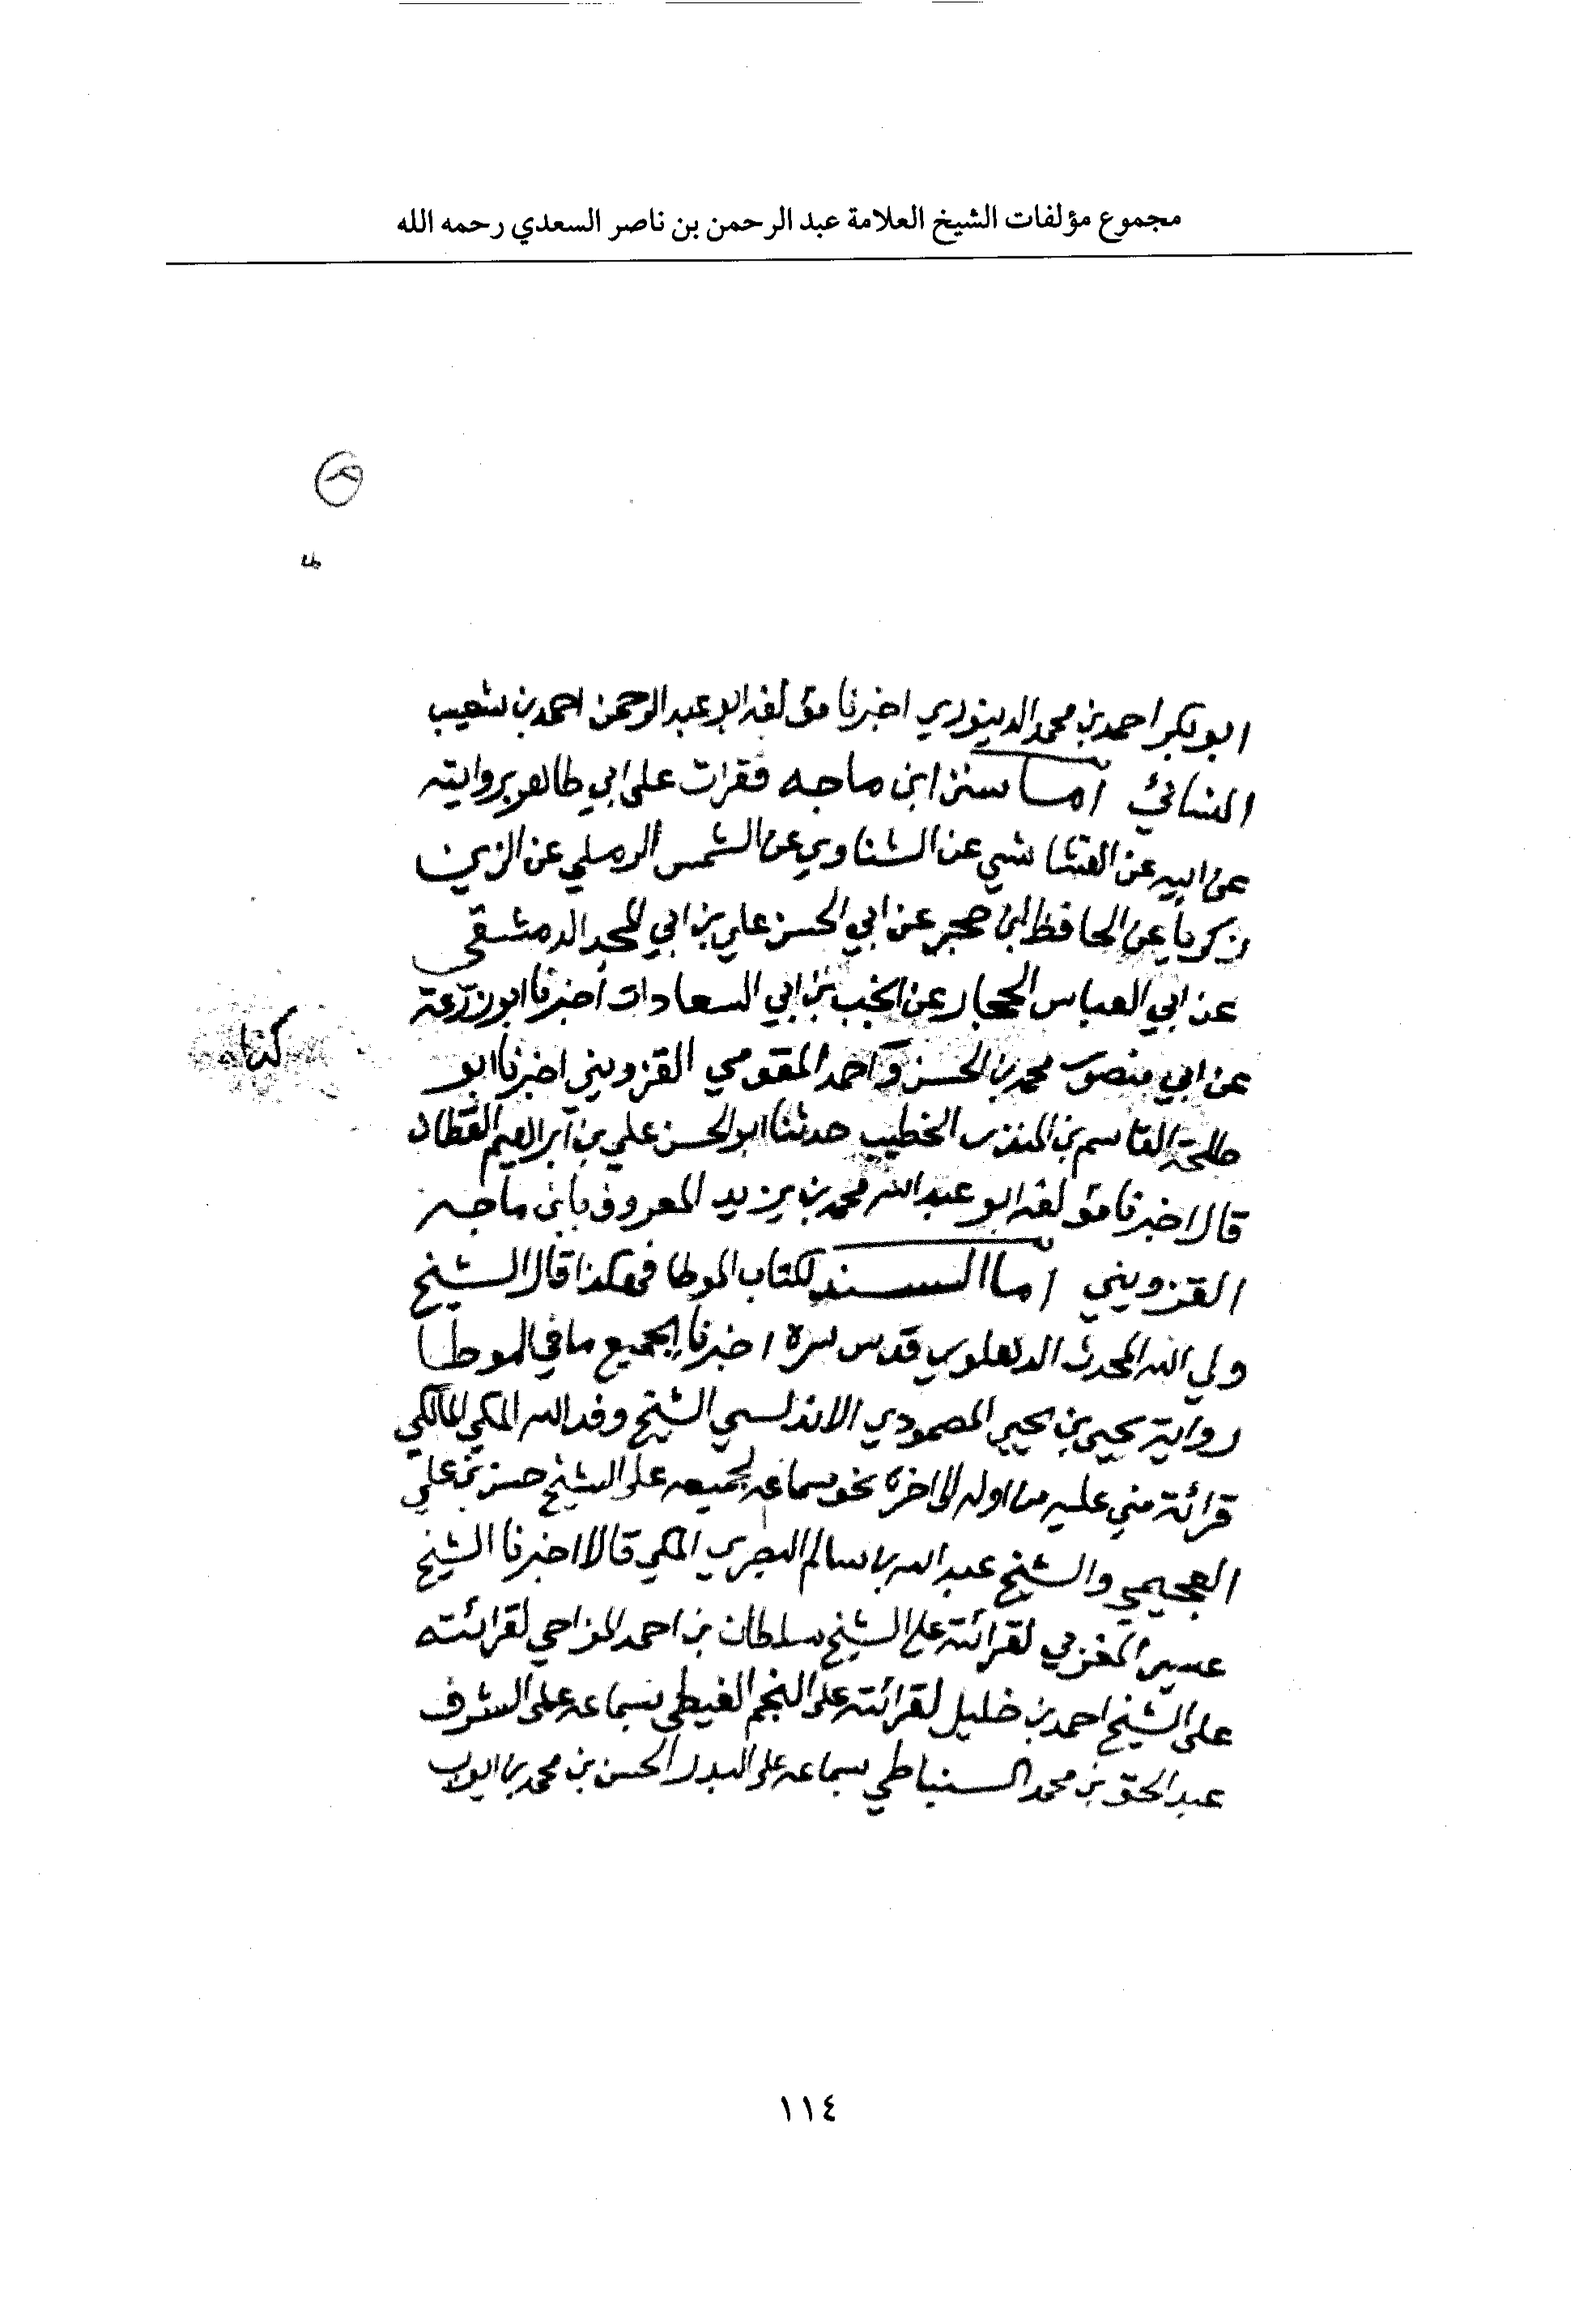 مجموع مؤلفات الشيخ العلامة عبد الرحمن بن ناصر السعدي رحمه الله
ابو بكر احمد بن محمد الدينوري اخبرنا مؤلفه ابو عبد الرحمن احمد بن شعيب
النسائي اما سنن ابن ماجه فقرات على ابي طاهر بروايته
عن ابيه عن القشاشي عن الشناوي عن الشمس الرملي عن الزين
زكريا عن الحافظ ابن حجر عن ابي الحسن علي بن ابي المجد الدمشقي
عن ابي العباس الحجار عن انجب بن ابي السعادات اخبرنا ابو زرعة
عن ابي منصور محمد بن الحسن واحمد المقومي القزويني اخبرنا ابو
طلحة القاسم بن المنذر الخطيب حدثنا ابو الحسن علي بن ابراهيم القطان
قال اخبرنا مؤلفه ابو عبد الله محمد بن يزيد المعروف بابن ماجه
القزويني اما السند لكتاب الموطا فهكذا قال الشيخ
ولي الله المحدث الدهلوي قدس سره اخبرنا بجميع ما في الموطا
رواية يحيى بن يحيى المصمودي الاندلسي الشيخ وفد الله المكي المالكي
قرائة مني عليه من اوله الى اخره نحو سماعه لجميعه على الشيخ حسن بن علي
العجيمي والشيخ عبد الله بن سالم البصري المكي قالا اخبرنا الشيخ
عيسى المغربي لقرائته على الشيخ سلطان بن احمد المزاحي لقرائته
على الشيخ احمد بن خليل لقرائته على النجم الغيطي بسماعه على الشرف
عبد الحق بن محمد السنباطي بسماعه على البدر الحسن بن محمد بن ايوب
١١٤